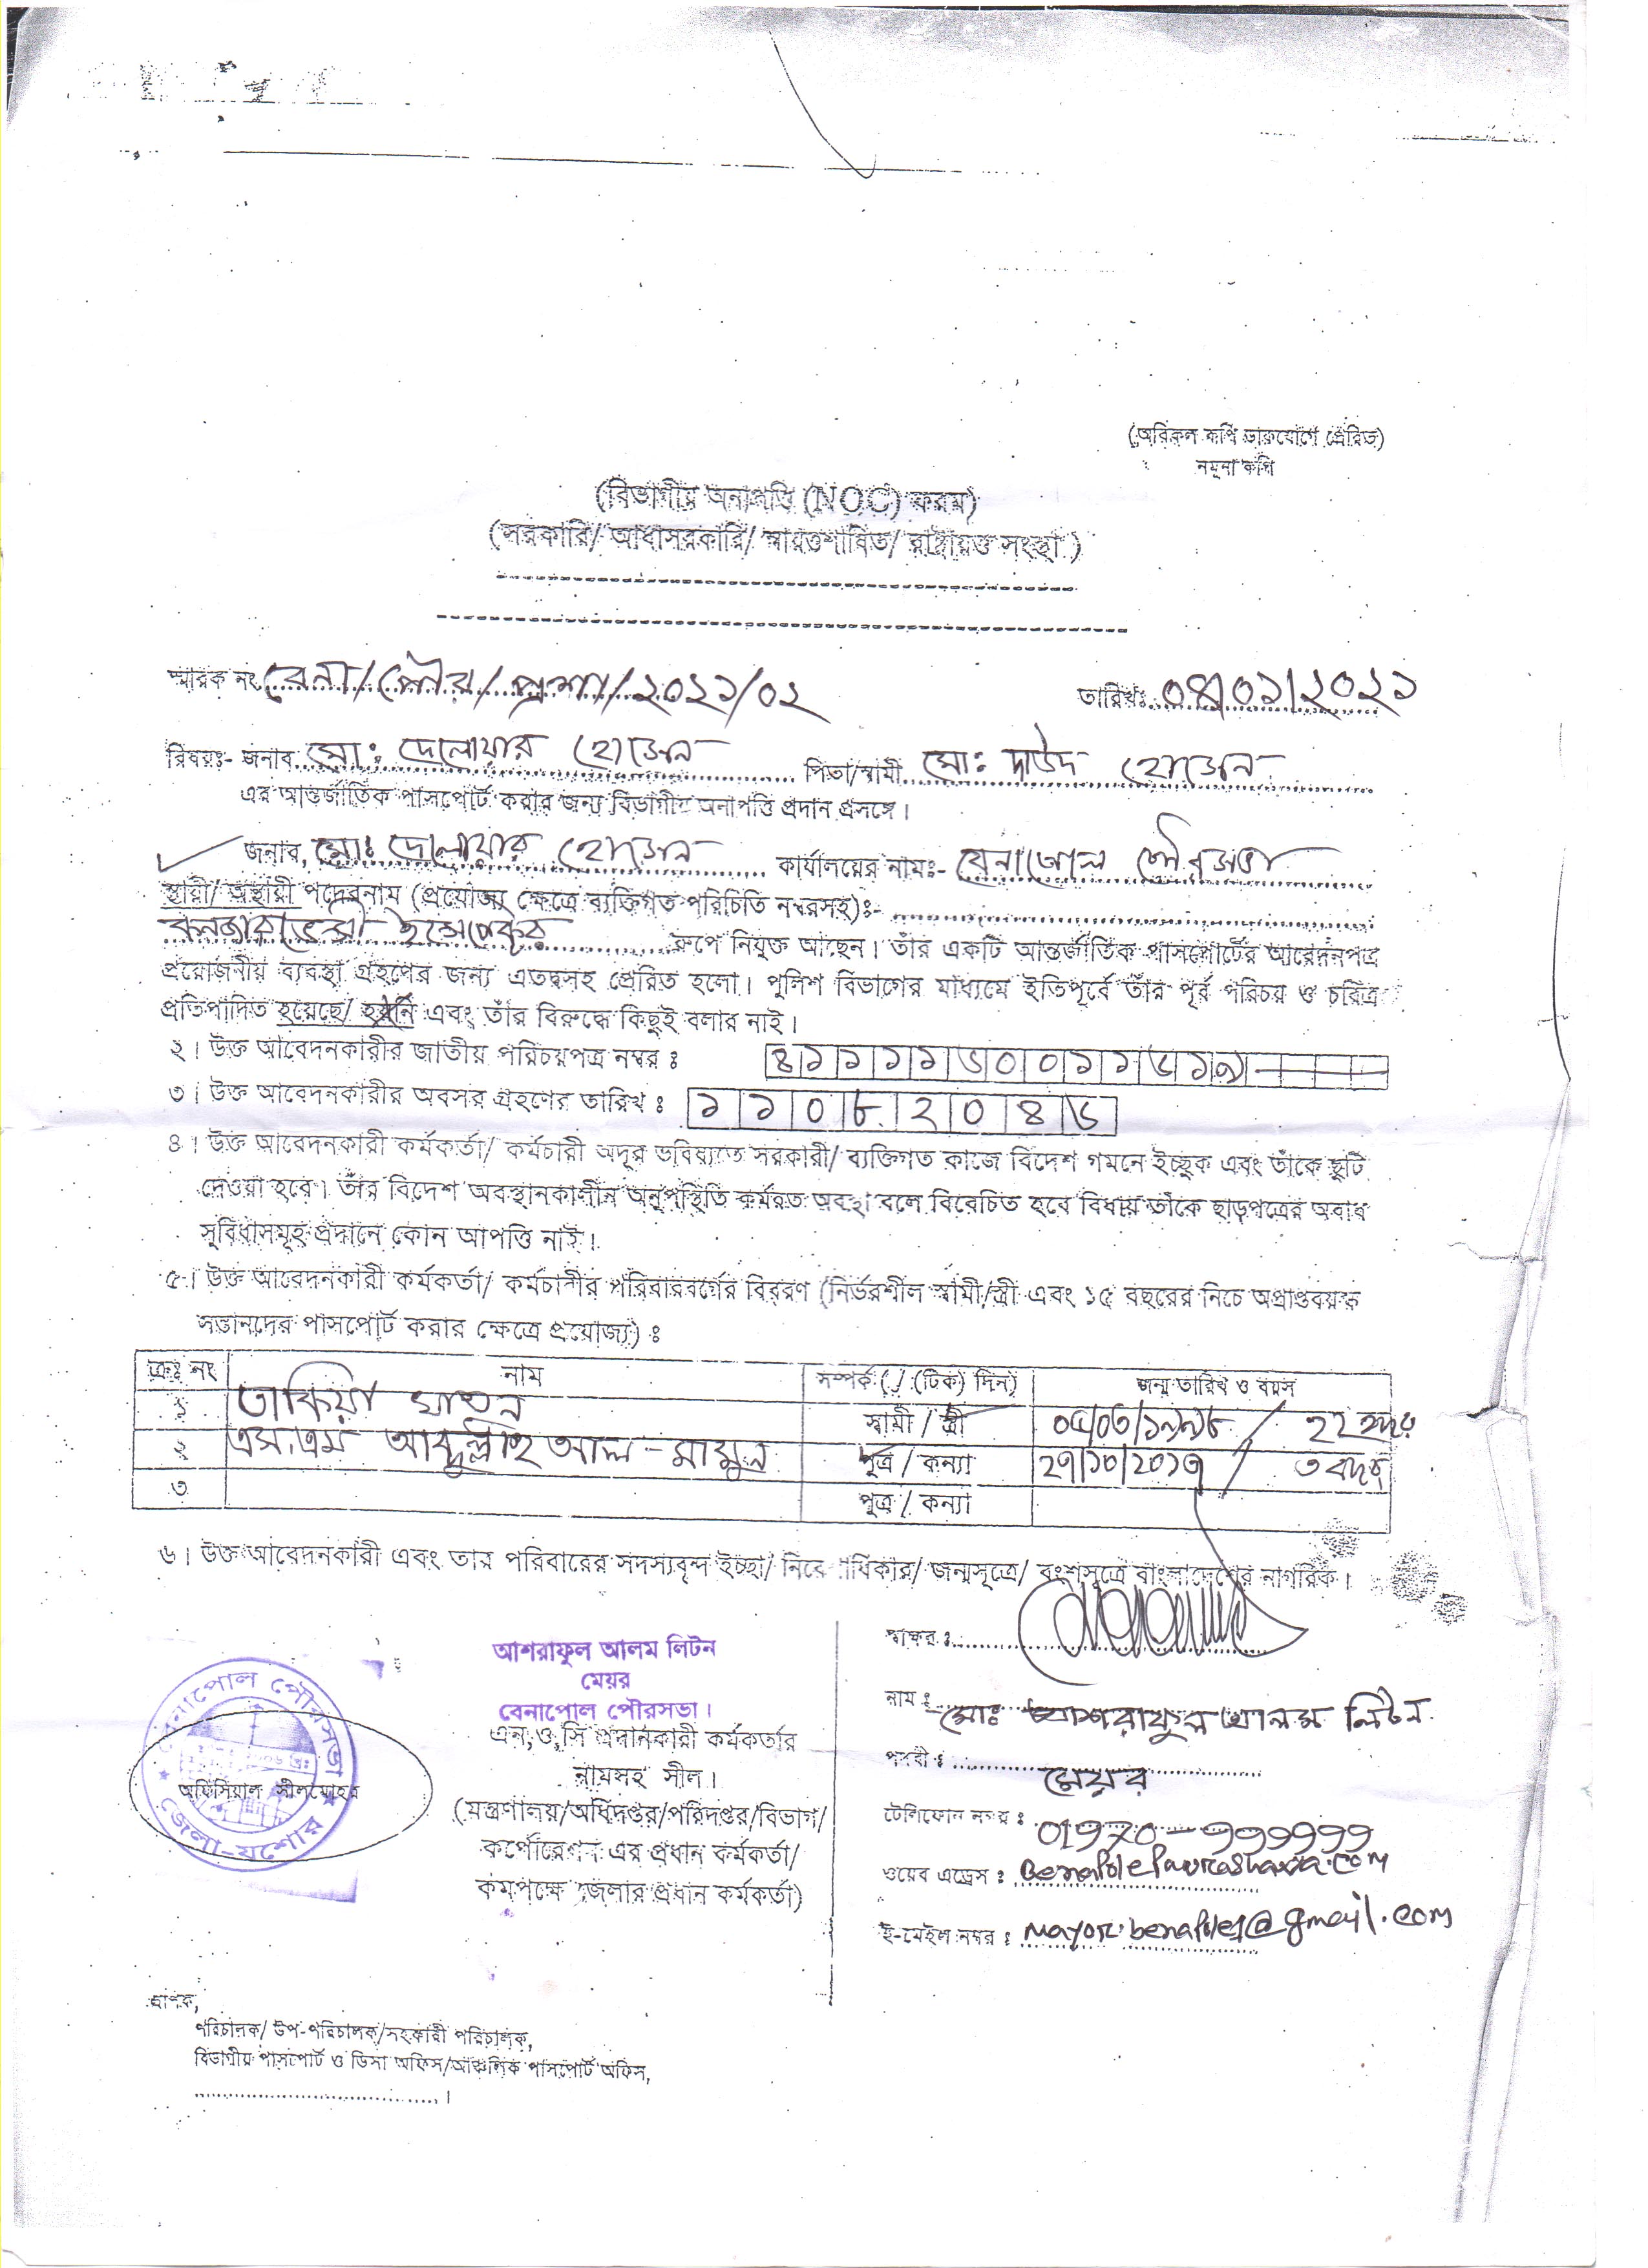 (অবিকল কপি ডাকযোগে প্রেরিত)
নমুনা কপি
(বিভাগীয় অনাপত্তি (NOC) ফরম)
(সরকারি/ আধাসরকারি/ স্বায়ত্তশাষিত/ রাষ্ট্রায়ত্ত সংস্থা )
স্মারক নং বেনা/পৌর/প্রশা/২০২১/০২ তারিখঃ ০৪/০১/২০২১
বিষয়ঃ- জনাব মোঃ দেলোয়ার হোসেন পিতা/স্বামী মোঃ দাউদ হোসেন
এর আন্তর্জাতিক পাসপোর্ট করার জন্য বিভাগীয় অনাপত্তি প্রদান প্রসঙ্গে।
জনাব, মোঃ দেলোয়ার হোসেন কার্যালয়ের নামঃ- বেনাপোল পৌরসভা
স্থায়ী/ অস্থায়ী পদের নাম (প্রযোজ্য ক্ষেত্রে ব্যক্তিগত পরিচিতি নম্বরসহ)ঃ-
কনজারভেন্সী ইন্সপেক্টর রূপে নিযুক্ত আছেন। তাঁর একটি আন্তর্জাতিক পাসপোর্টের আবেদনপত্র
প্রয়োজনীয় ব্যবস্থা গ্রহণের জন্য এতদসহ প্রেরিত হলো। পুলিশ বিভাগের মাধ্যমে ইতিপূর্বে তাঁর পূর্ব পরিচয় ও চরিত্র
প্রতিপাদিত হয়েছে/ হয়নি এবং তাঁর বিরুদ্ধে কিছুই বলার নাই।
২। উক্ত আবেদনকারীর জাতীয় পরিচয়পত্র নম্বর ঃ ৪১১১১৬০০১১৬১৯
৩। উক্ত আবেদনকারীর অবসর গ্রহণের তারিখ ঃ ১১০৮২০৪৬
৪। উক্ত আবেদনকারী কর্মকর্তা/ কর্মচারী অদূর ভবিষ্যতে সরকারী/ ব্যক্তিগত কাজে বিদেশ গমনে ইচ্ছুক এবং তাঁকে ছুটি
দেওয়া হবে। তাঁর বিদেশ অবস্থানকালীন অনুপস্থিতি কর্মরত অবস্থা বলে বিবেচিত হবে বিধায় তাঁকে ছাড়পত্রের অবাধ
সুবিধাসমূহ প্রদানে কোন আপত্তি নাই।
৫। উক্ত আবেদনকারী কর্মকর্তা/ কর্মচারীর পরিবারবর্গের বিবরণ (নির্ভরশীল স্বামী/স্ত্রী এবং ১৫ বছরের নিচে অপ্রাপ্তবয়স্ক
সন্তানদের পাসপোর্ট করার ক্ষেত্রে প্রযোজ্য) ঃ
ক্রঃ নং নাম সম্পর্ক (√ (টিক) দিন) জন্ম তারিখ ও বয়স
১ তাকিয়া খাতুন স্বামী / স্ত্রী ০৫/০৩/১৯৯৮ / ২২ বছর
২ এস.এম আব্দুল্লাহ আল-মামুন পুত্র / কন্যা ২৭/১০/২০১৭ / ৩ বছর
৩ পুত্র / কন্যা
৬। উক্ত আবেদনকারী এবং তার পরিবারের সদস্যবৃন্দ ইচ্ছা/ জন্মসূত্রে/ বংশসূত্রে বাংলাদেশের নাগরিক।
স্বাক্ষর ঃ
আশরাফুল আলম লিটন
মেয়র
বেনাপোল পৌরসভা।
এন,ও,সি প্রদানকারী কর্মকর্তার
নামসহ সীল।
(মন্ত্রণালয়/অধিদপ্তর/পরিদপ্তর/বিভাগ/
কর্পোরেশন এর প্রধান কর্মকর্তা/
কমপক্ষে জেলার প্রধান কর্মকর্তা)
বেনাপোল পৌরসভা
অফিসিয়াল সীলমোহর
জেলা-যশোর
নাম ঃ মোঃ আশরাফুল আলম লিটন
পদবী ঃ মেয়র
টেলিফোন নম্বর ঃ 01920-999999
ওয়েব এড্রেস ঃ Benapolepourashava.com
ই-মেইল নম্বর ঃ mayor.benapole1@gmail.com
প্রাপক,
পরিচালক/ উপ-পরিচালক/সহকারী পরিচালক,
বিভাগীয় পাসপোর্ট ও ভিসা অফিস/আঞ্চলিক পাসপোর্ট অফিস,